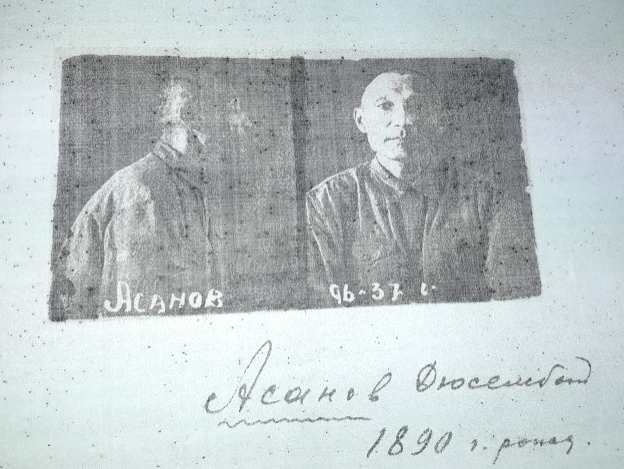 Асанов
96-37 г.
Асанов Дюсембай
1890 г. рожд.